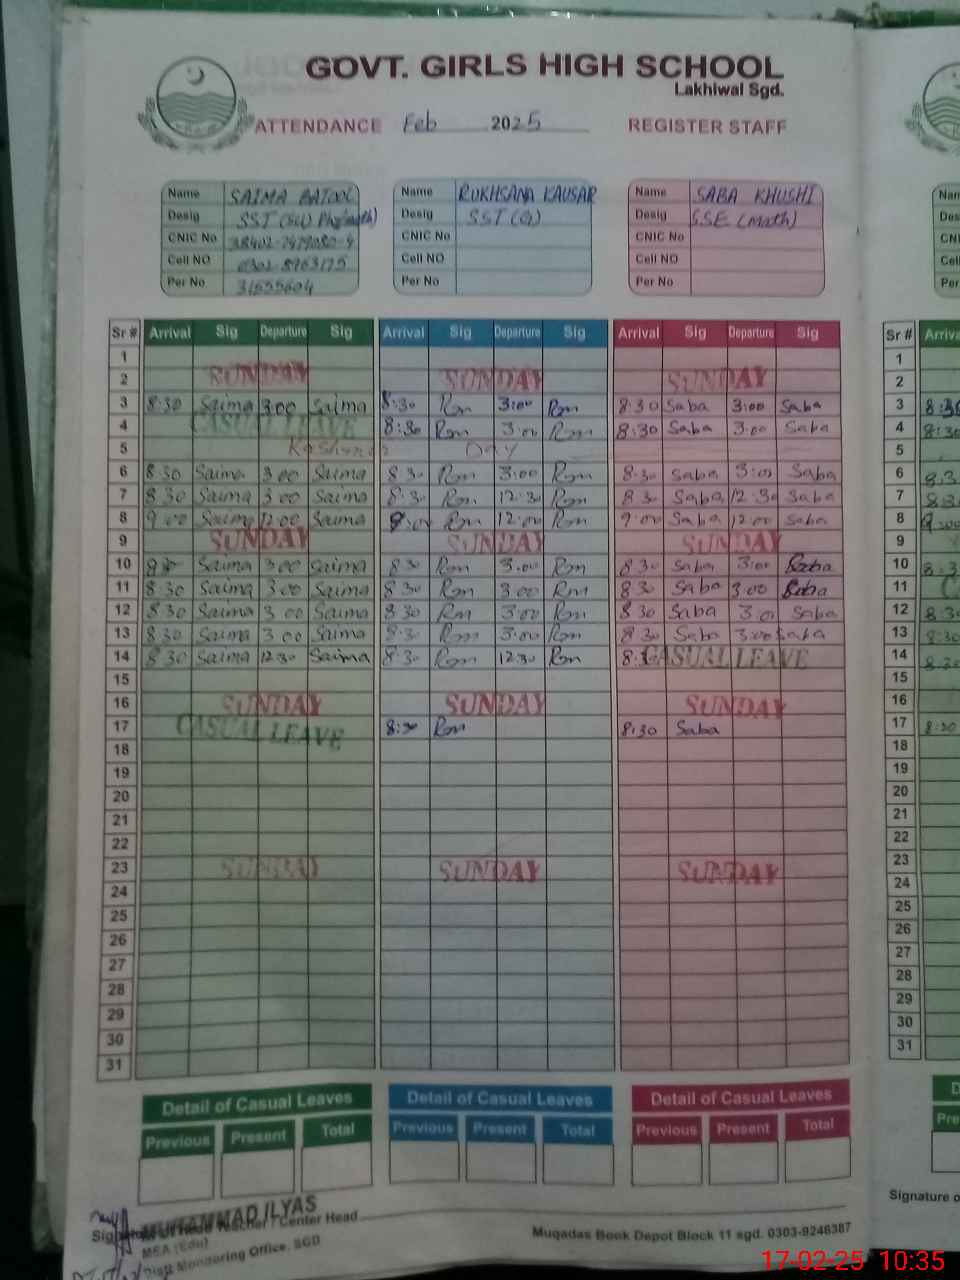 GOVT. GIRLS HIGH SCHOOL
Lakhiwal Sgd.
ATTENDANCE Feb 2025 REGISTER STAFF
Name SAIMA BATOOL Name RUKHSANA KAUSAR Name SABA KHUSHI Name
Desig SST (Sci) Desig SST (G) Desig SSE (Math) Des
CNIC No CNIC No CNIC No CNI
Cell NO Cell NO Cell NO Cel
Per No 31555604 Per No Per No Per
Sr # Arrival Sig Departure Sig Arrival Sig Departure Sig Arrival Sig Departure Sig Sr # Arriva
1 1
2 SUNDAY SUNDAY SUNDAY 2
3 8:30 Saima 3:00 Saima 8:30 Rm 3:00 Rm 8:30 Saba 3:00 Saba 3 8:30
4 CASUAL LEAVE 8:30 Rm 3:00 Rm 8:30 Saba 3:00 Saba 4 8:30
5 Kashmir Day 5
6 8:30 Saima 3:00 Saima 8:30 Rm 3:00 Rm 8:30 Saba 3:00 Saba 6 8:3
7 8:30 Saima 3:00 Saima 8:30 Rm 12:30 Rm 8:30 Saba 12:30 Saba 7 8:3
8 9:00 Saima 12:00 Saima 9:00 Rm 12:00 Rm 9:00 Saba 12:00 Saba 8 9:00
9 SUNDAY SUNDAY SUNDAY 9
10 Saima 3:00 Saima 8:30 Rm 3:00 Rm 8:30 Saba 3:00 Saba 10 8:3
11 8:30 Saima 3:00 Saima 8:30 Rm 3:00 Rm 8:30 Saba 3:00 Saba 11
12 8:30 Saima 3:00 Saima 8:30 Rm 3:00 Rm 8:30 Saba 3:00 Saba 12 8:30
13 8:30 Saima 3:00 Saima 8:30 Rm 3:00 Rm 8:30 Saba 3:00 Saba 13 8:30
14 8:30 Saima 12:30 Saima 8:30 Rm 12:30 Rm 8:30 CASUAL LEAVE 14 8:30
15 15
16 SUNDAY SUNDAY SUNDAY 16
17 CASUAL LEAVE 8:30 Rm 8:30 Saba 17 8:30
18 18
19 19
20 20
21 21
22 22
23 SUNDAY SUNDAY SUNDAY 23
24 24
25 25
26 26
27 27
28 28
29 29
30 30
31 31
Detail of Casual Leaves Detail of Casual Leaves Detail of Casual Leaves D
Previous Present Total Previous Present Total Previous Present Total Pre
MUHAMMAD ILYAS
Head Teacher / Center Head
MEA (Edu)
Distt Monitoring Office, SGD
Muqadas Book Depot Block 11 sgd. 0303-9246387
Signature o
17-02-25 10:35